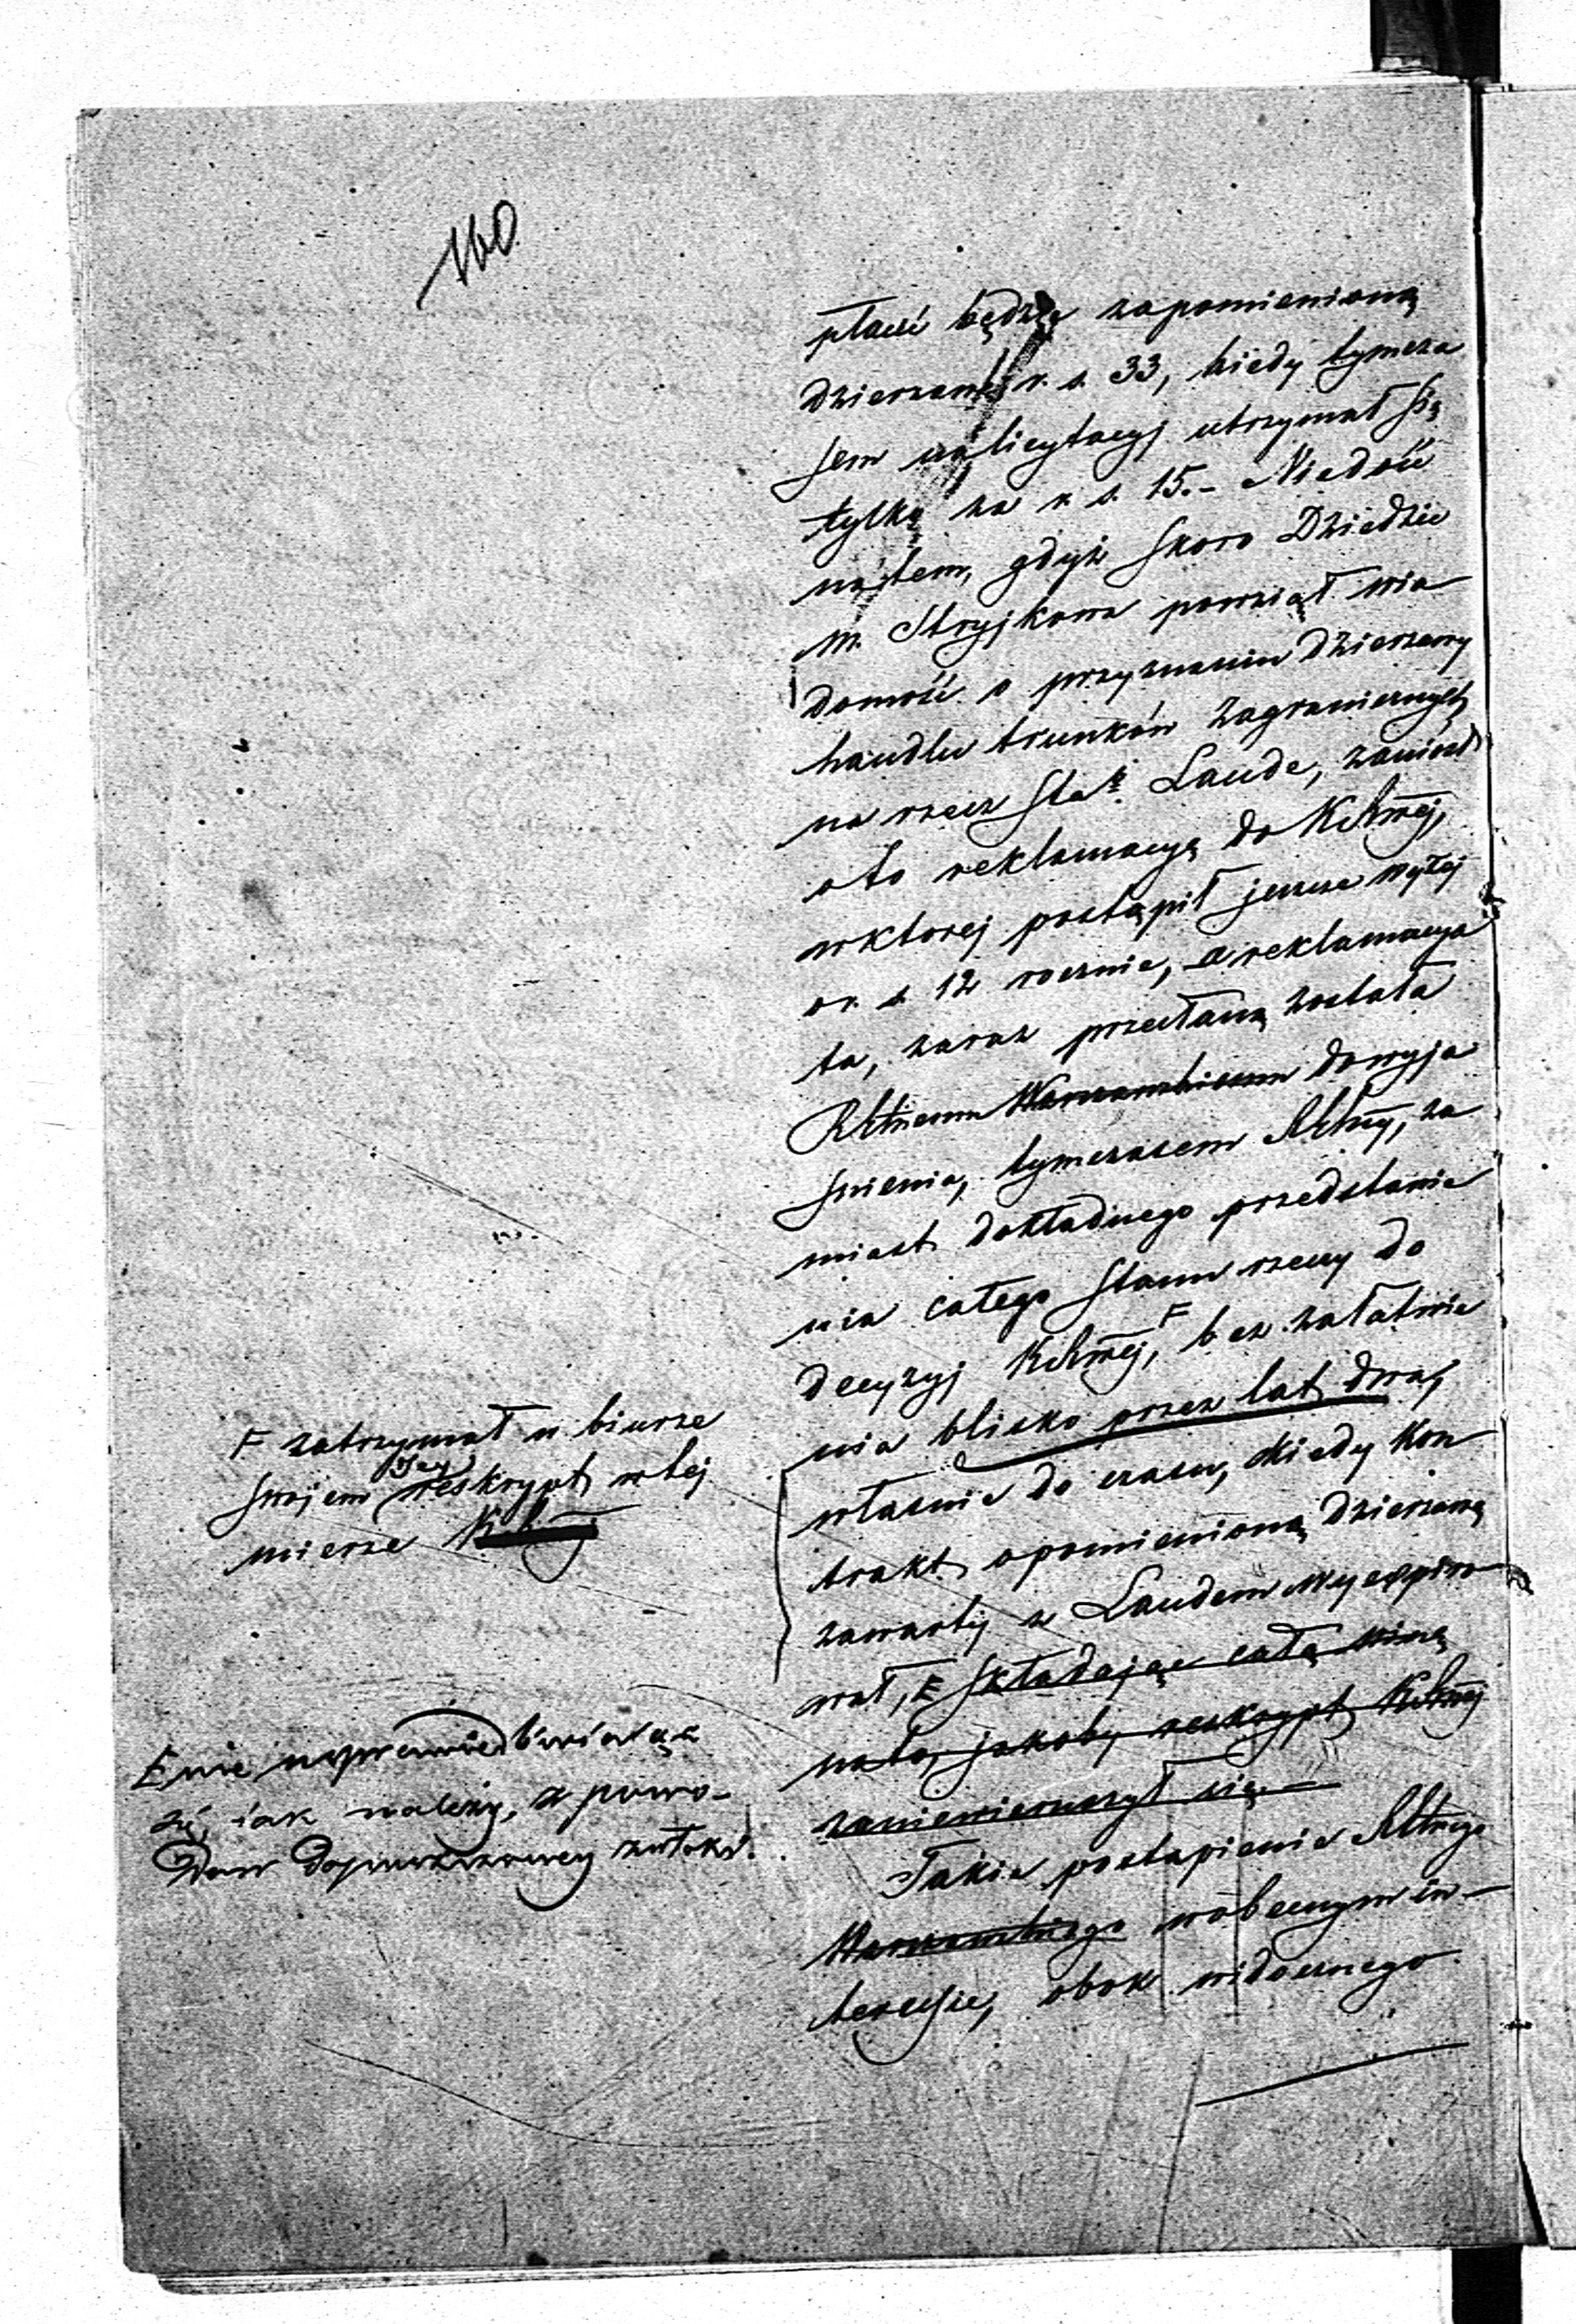 160
płacić będzie zapomienioną
dzierzawę r. s. 33, kiedy tymcza
sem na licytacyj utrzymał się
tylko za r. s. 15.– Niedość
na tem, gdyż skoro Dziedzic
m. Strykowa powziął wia
domość o przyznaniu dzierzawy
handlu trunków zagranicznych
na rzecz Sta. Laude, zaniósł
oto reklamacyą do
wktorej postąpił jeszcze wyżej
o r. s. 12 rocznie, a reklamacya
ta, zaraz przesłaną została
Warszawskiemu dowyja
snienia, tymczasem za
miast dokładnego przedstawie
nia całego stanu rzeczy do
decyzyj F bez załatwie
nia blisko przez lat dwa,
własnie do czasu, kiedy kon
trakt opomienioną dzierzawę
zawarty z Laudem wyexpiro
wał, E składając całą winę
na to, jakoby reskrypt
zaniewieruszył się.–
Takie postąpienie
Warszawskiego wobecnym in–
teressie, obok widocznego
F zatrzymał w biurze
swojem Jey reskrypt wtej
mierze
E nie usprawiedliwiając
się, iak należy, z powo–
dów dopuszczoney zwłoki.